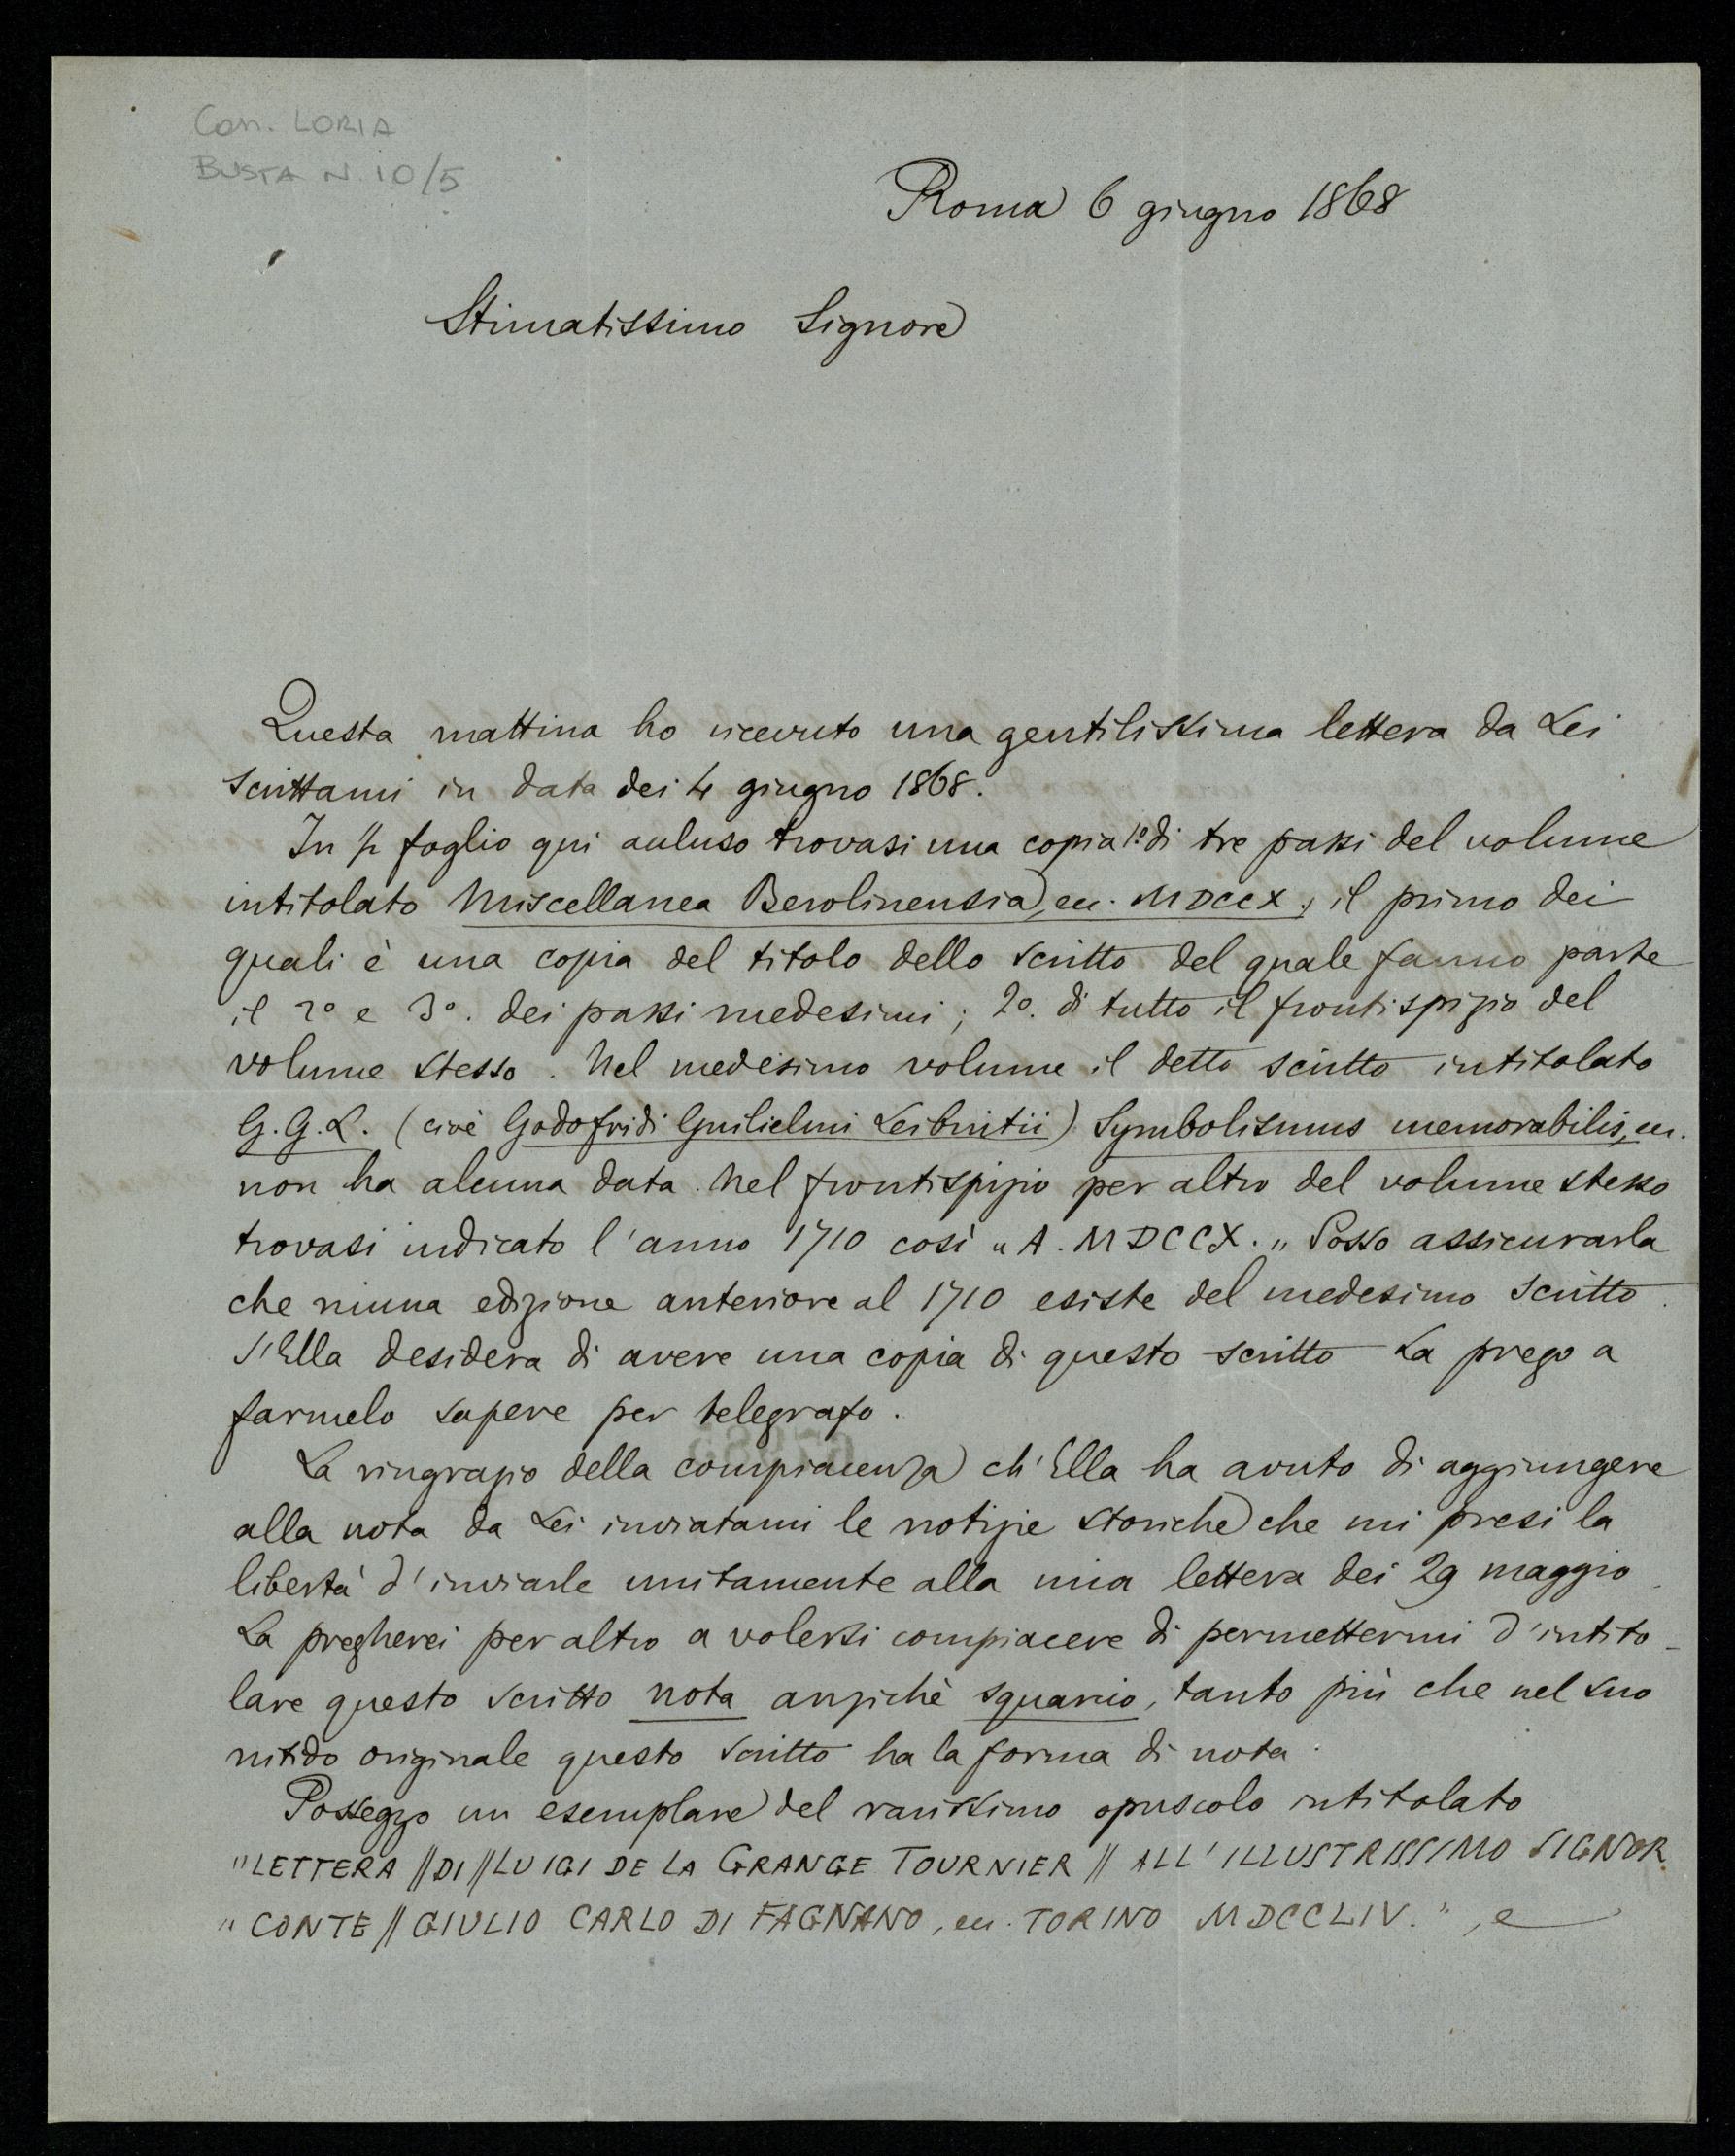 Con. LORIA
BUSTA N. 10/5
Roma 6 giugno 1868
Stimatissimo Signore
Questa mattina ho ricevuto una gentilissima lettera da Lei
scrittami in data dei 4 giugno 1868.
In ½ foglio qui anluso trovasi una copia 1.º di tre passi del volume
intitolato Miscellanea Berolinensia, ec. MDCCX, il primo dei
quali è una copia del titolo dello scritto del quale fanno parte
il 2º e 3º. dei passi medesimi; 2º. di tutto il frontispizio del
volume stesso. Nel medesimo volume il detto scritto intitolato
G. G. L. (cioè Godofridi Guilielmi Leibnitii) Symbolismus memorabilis, ec.
non ha alcuna data. Nel frontispizio per altro del volume stesso
trovasi indicato l'anno 1710 così „A. MDCCX.„ Posso assicurarla
che niuna edizione anteriore al 1710 esiste del medesimo scritto.
S'Ella desidera di avere una copia di questo scritto La prego a
farmelo sapere per telegrafo.
La ringrazio della compiacenza ch'Ella ha avuto di aggiungere
alla nota da Lei inviatami le notizie storiche che mi presi la
libertà d'inviarle unitamente alla mia lettera dei 29 maggio.
La pregherei per altro a volersi compiacere di permettermi d'intito-
lare questo scritto nota anzichè squarcio, tanto più che nel suo
nitido originale questo scritto ha la forma di nota.
Posseggo un esemplare del rarissimo opuscolo intitolato
"LETTERA || DI || LUIGI DE LA GRANGE TOURNIER || ALL'ILLUSTRISSIMO SIGNOR
"CONTE || GIULIO CARLO DI FAGNANO, ec. TORINO MDCCLIV.", e